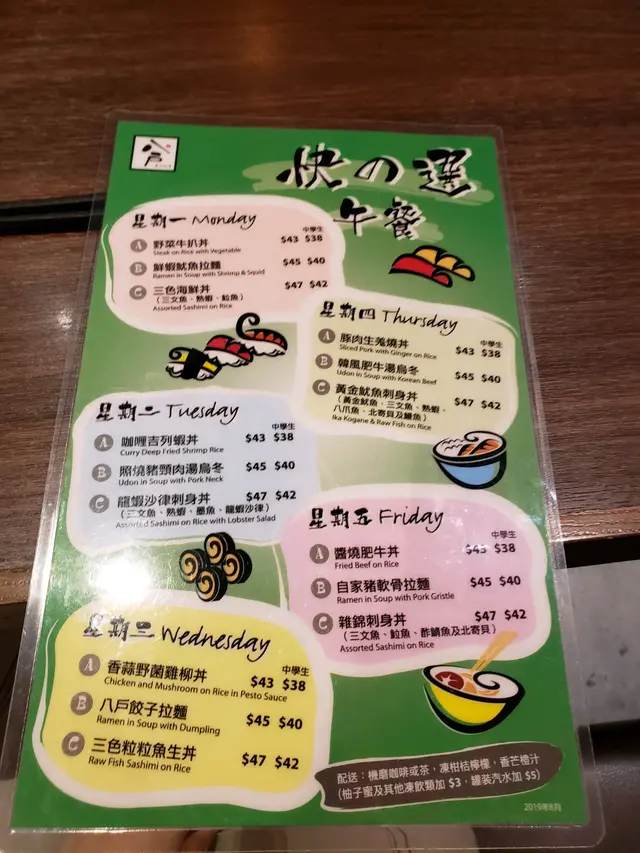 八戶
快の選
午餐
星期一 Monday
中學生
A 野菜牛扒丼 $43 $38
Steak on Rice with Vegetable
B 鮮蝦魷魚拉麵 $45 $40
Ramen in Soup with Shrimp & Squid
C 三色海鮮丼 $47 $42
(三文魚、熟蝦、粒魚)
Assorted Sashimi on Rice
星期二 Tuesday
中學生
A 咖喱吉列蝦丼 $43 $38
Curry Deep Fried Shrimp Rice
B 照燒豬頸肉湯烏冬 $45 $40
Udon in Soup with Pork Neck
C 龍蝦沙律刺身丼 $47 $42
(三文魚、熟蝦、墨魚、龍蝦沙律)
Assorted Sashimi on Rice with Lobster Salad
星期三 Wednesday
中學生
A 香蒜野菌雞柳丼 $43 $38
Chicken and Mushroom on Rice in Pesto Sauce
B 八戶餃子拉麵 $45 $40
Ramen in Soup with Dumpling
C 三色粒粒魚生丼 $47 $42
Raw Fish Sashimi on Rice
星期四 Thursday
中學生
A 豚肉生羗燒丼 $43 $38
Sliced Pork with Ginger on Rice
B 韓風肥牛湯烏冬 $45 $40
Udon in Soup with Korean Beef
C 黃金魷魚刺身丼 $47 $42
(黃金魷魚、三文魚、熟蝦、
八爪魚、北寄貝及鰻魚)
Ika Kogane & Raw Fish on Rice
星期五 Friday
中學生
A 醬燒肥牛丼 $43 $38
Fried Beef on Rice
B 自家豬軟骨拉麵 $45 $40
Ramen in Soup with Pork Gristle
C 雜錦刺身丼 $47 $42
(三文魚、粒魚、酢鯖魚及北寄貝)
Assorted Sashimi on Rice
配送：機磨咖啡或茶，凍柑桔檸檬，香芒橙汁
(柚子蜜及其他凍飲類加 $3，罐裝汽水加 $5)
2019年8月